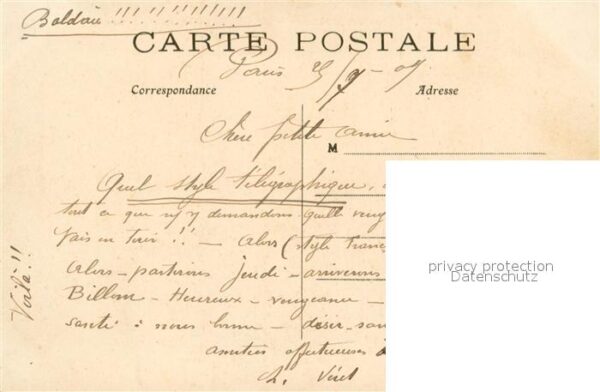 Baldau !!!!!!!!!!
CARTE POSTALE
Paris 25/9-07
Correspondance
Adresse
Chère petite amie
M
Quel style télégraphique,
tout ce que
demandons quelle
fais en tenir !! — Alors (style franç
Alors — partirons jeudi — arriverons
Billom — Heureux — vengeance —
santé : nous bonne — désir — san
amitiés affectueuses à
Ch. Véret
Voilà!!
privacy protection
Datenschutz